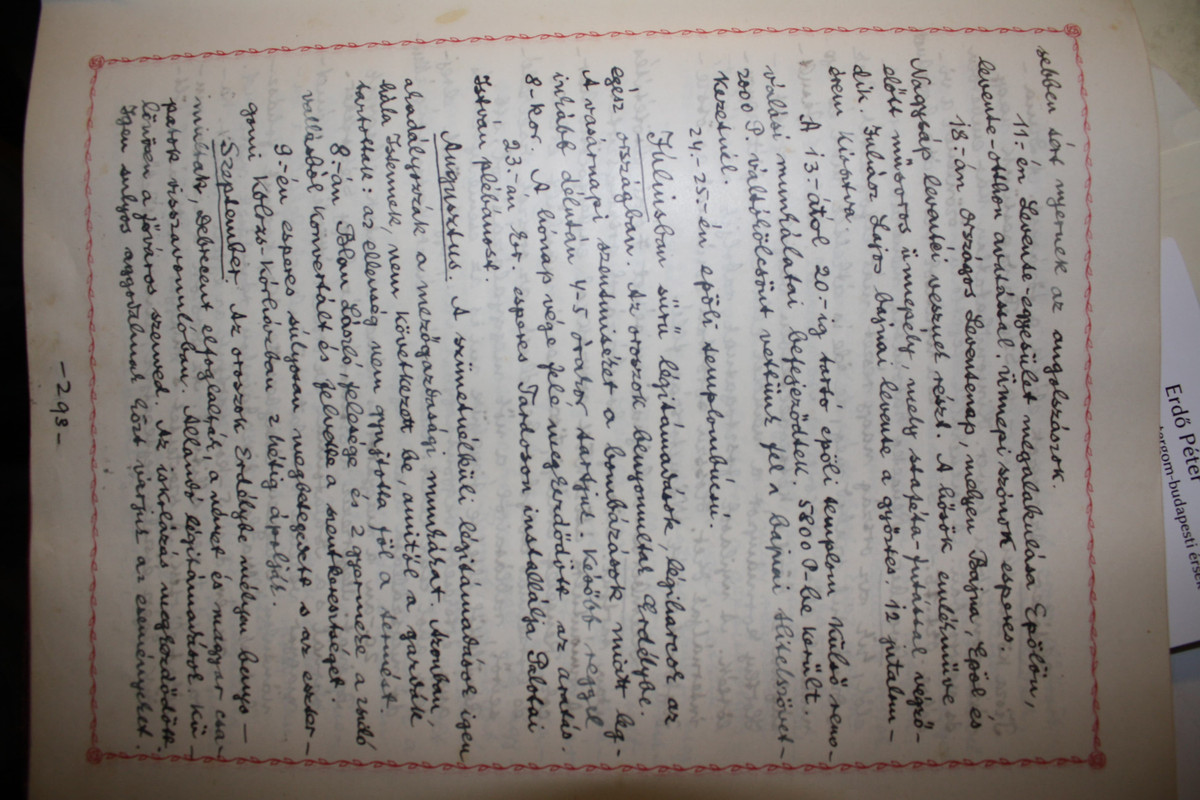 sebben sért nyernek az angolszászok.
11.-én Levente-egyesület megalakulása Epölön,
levente-otthon avatással. Ünnepi szónok esperes.
18.-án Országos Leventenap, melyen Bajna, Epöl és
Nagysáp leventéi vesznek részt. A hősök emlékműve
előtt műsoros ünnepély, mely staféta-futással végző-
dik. Juhász Lajos bajnai levente a győztes. 12 jutalom-
érem kiosztva.
A 13.-ától 20-ig tartó epöli templom külső reno-
válási munkálatai befejeződtek. 5800 P-be került.
2000 P. váltókölcsönt vettünk fel a bajnai Hitelszövet-
kezetnél.
24.-25.-én epöli templombúcsu.
Júliusban sűrű légitámadások, légiharcok az
egész országban. Az oroszok benyomultak Erdélybe.
A vasárnapi szentmisét a bombázások miatt leg-
inkább délután 4-5 órakor tartjuk. Később reggel
8-kor. A hónap vége felé megkezdődött az aratás.
23.-án ker. esperes Tardoson installálja Palotai
István plébánost.
Augusztus. A szünetnélküli légitámadások igen
akadályozzák a mezőgazdasági munkákat. Azonban,
hála Istennek, nem következett be, amitől a gazdák
tartottak: az ellenség nem gyujtotta föl a termést.
8.-án Blau László, felesége és 2 gyermeke a zsidó
vallásból konvertált és felvette a szentkeresztséget.
9.-én esperes súlyosan megbetegszik s az eszter-
gomi Kolozs-Kórházban 2 hétig ápolják.
Szeptember. Az oroszok Erdélybe mélyen benyo-
multak, Debrecent elfoglalják, a német és magyar csa-
patok visszavonulóban. Állandó légitámadások. Kü-
lönösen a főváros szenved. Az iskolázás megkezdődött.
Igen sulyos aggodalmak közt várjuk az eseményeket.
-293-
Erdő Péter
tergom-budapesti érse